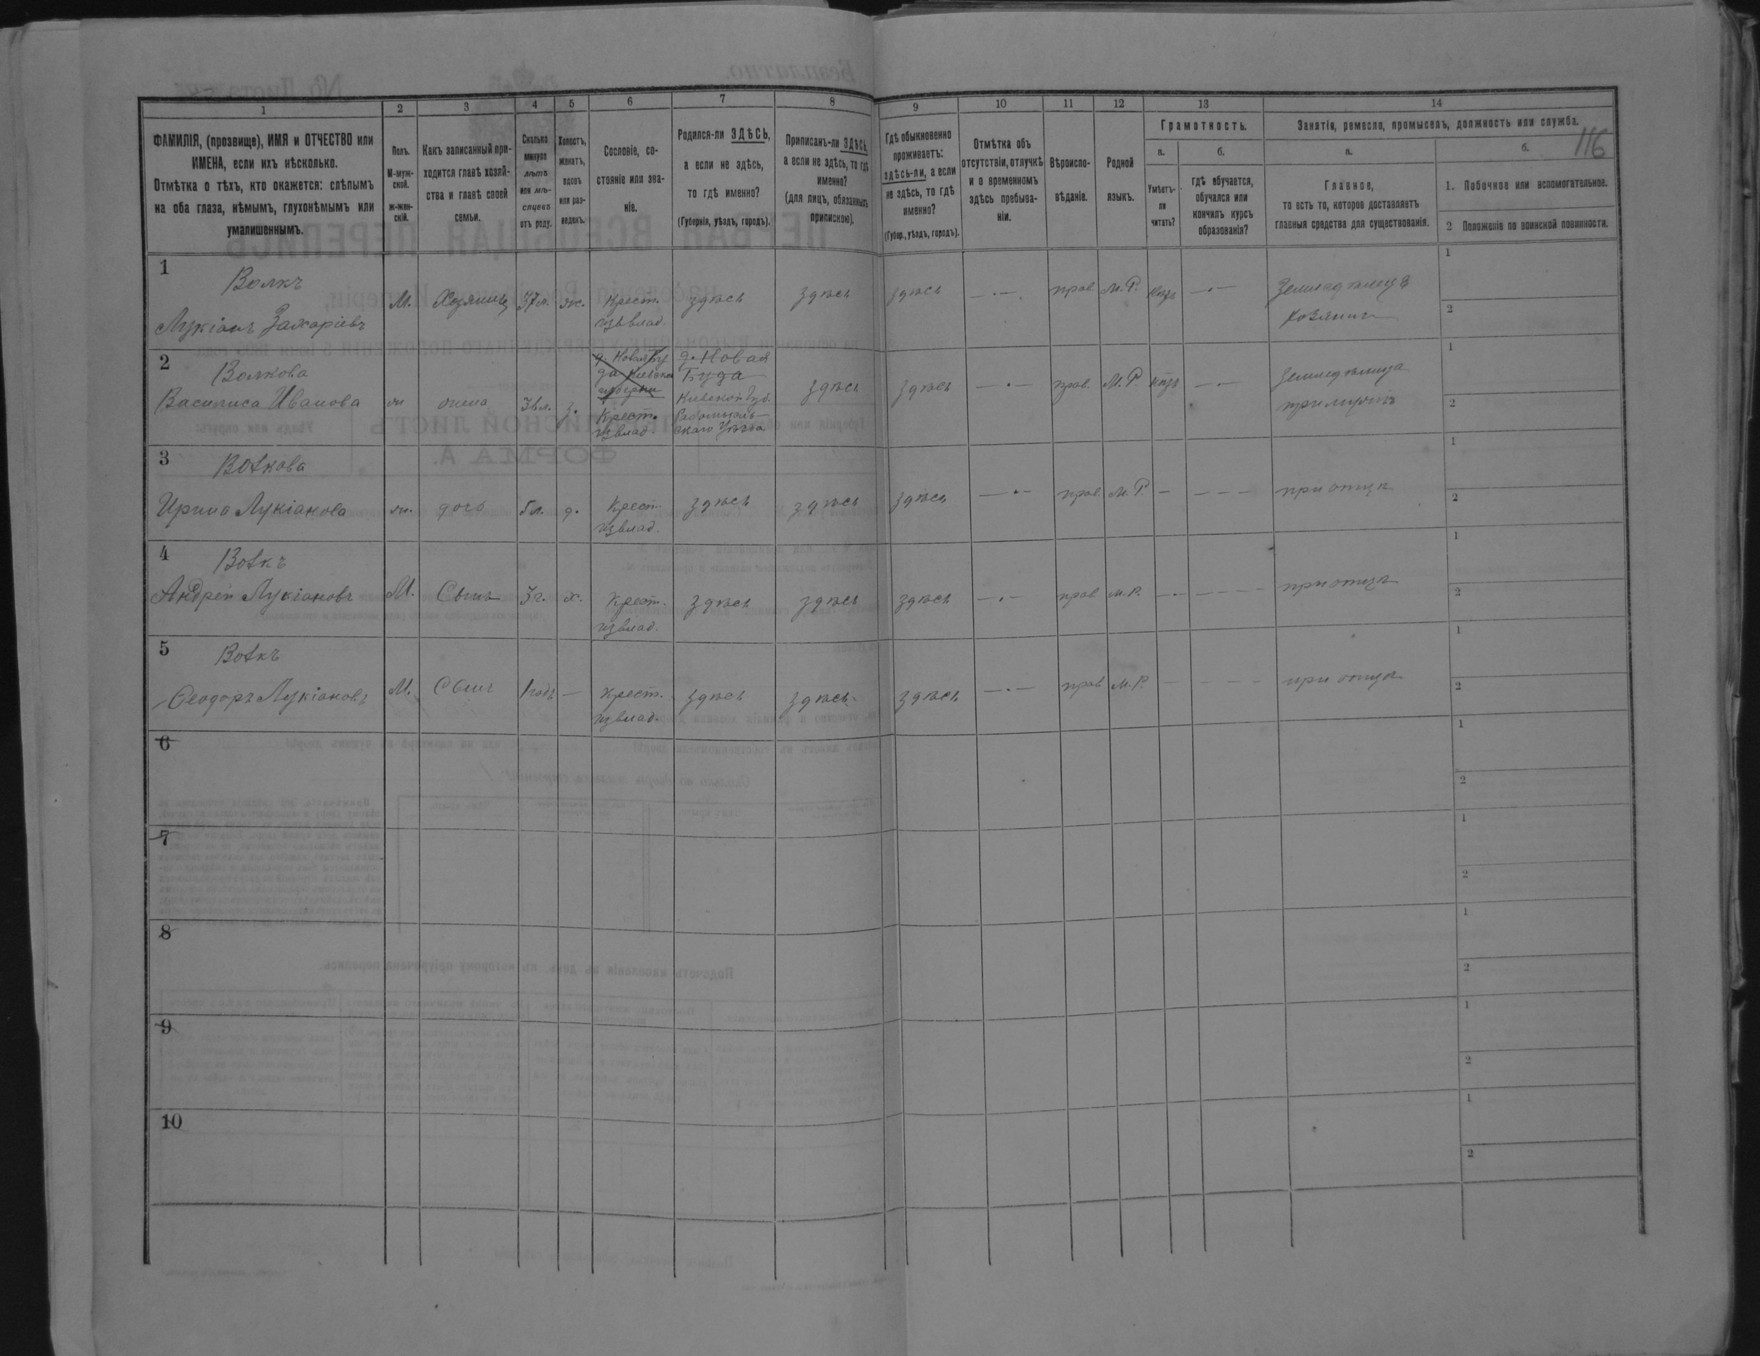 116
1 2 3 4 5 6 7 8 9 10 11 12 13 14
ФАМИЛІЯ, (прозвище), ИМЯ и ОТЧЕСТВО или
ИМЕНА, если ихъ нѣсколько.
Отмѣтка о тѣхъ, кто окажется: слѣпымъ
на оба глаза, нѣмымъ, глухонѣмымъ или
умалишеннымъ.
Полъ.
М-муж-
ской.
ж-жен-
скій.
Какъ записанный при-
ходится главѣ хозяй-
ства и главѣ своей
семьи.
Сколько
минуло
лѣтъ
или мѣ-
сяцевъ
отъ роду.
Холостъ,
женатъ,
вдовъ
или раз-
веденъ.
Сословіе, со-
стояніе или зва-
ніе.
Родился-ли ЗДѢСЬ,
а если не здѣсь,
то гдѣ именно?
(Губернія, уѣздъ, городъ).
Приписанъ-ли ЗДѢСЬ,
а если не здѣсь, то гдѣ
именно?
(для лицъ, обязанныхъ
припискою).
Гдѣ обыкновенно
проживаетъ:
здѣсь-ли, а если
не здѣсь, то гдѣ
именно?
(Губер., уѣздъ, городъ).
Отмѣтка объ
отсутствіи, отлучкѣ
и о временномъ
здѣсь пребыва-
ніи.
Вѣроиспо-
вѣданіе.
Родной
языкъ.
Грамотность.
а.
Умѣетъ-
ли
читать?
б.
гдѣ обучается,
обучался или
кончилъ курсъ
образованія?
Занятія, ремесло, промыселъ, должность или служба.
а.
Главное,
то есть то, которое доставляетъ
главныя средства для существованія.
б.
1. Побочное или вспомогательное.
2 Положеніе по воинской повинности.
1
Волкъ
Лукіанъ Захаріевъ
М. Хозяинъ 37л. ж. Крест.
изъ влад.
здѣсь здѣсь здѣсь — · — прав М.Р. — · —
Земледѣлецъ
хозяинъ
1
2
2
Волкова
Василиса Ивановa
ж жена з. Крест.
изъ влад.
д. Новая
Буда
Кіевской губ.
Радомысль-
скаго уѣзда
здѣсь здѣсь — · — прав. М.Р. — · —
1
2
3
Волкова
Ирина Лукіанова
ж. дочь 5л. д. Крест.
изъ влад.
здѣсь здѣсь здѣсь — · — прав М.Р. — — — —
при отцѣ
1
2
4
Волкъ
Андрей Лукіановъ
М. Сынъ 3г. х. Крест.
изъ влад.
здѣсь здѣсь здѣсь — · — прав М.Р. — · — — — —
при отцѣ
1
2
5
Волкъ
Ѳеодоръ Лукіановъ
М. Сынъ 1годъ — Крест.
изъ влад.
здѣсь здѣсь здѣсь — · — прав М.Р. — — — —
при отцѣ
1
2
6
1
2
7
1
2
8
1
2
9
1
2
10
1
2